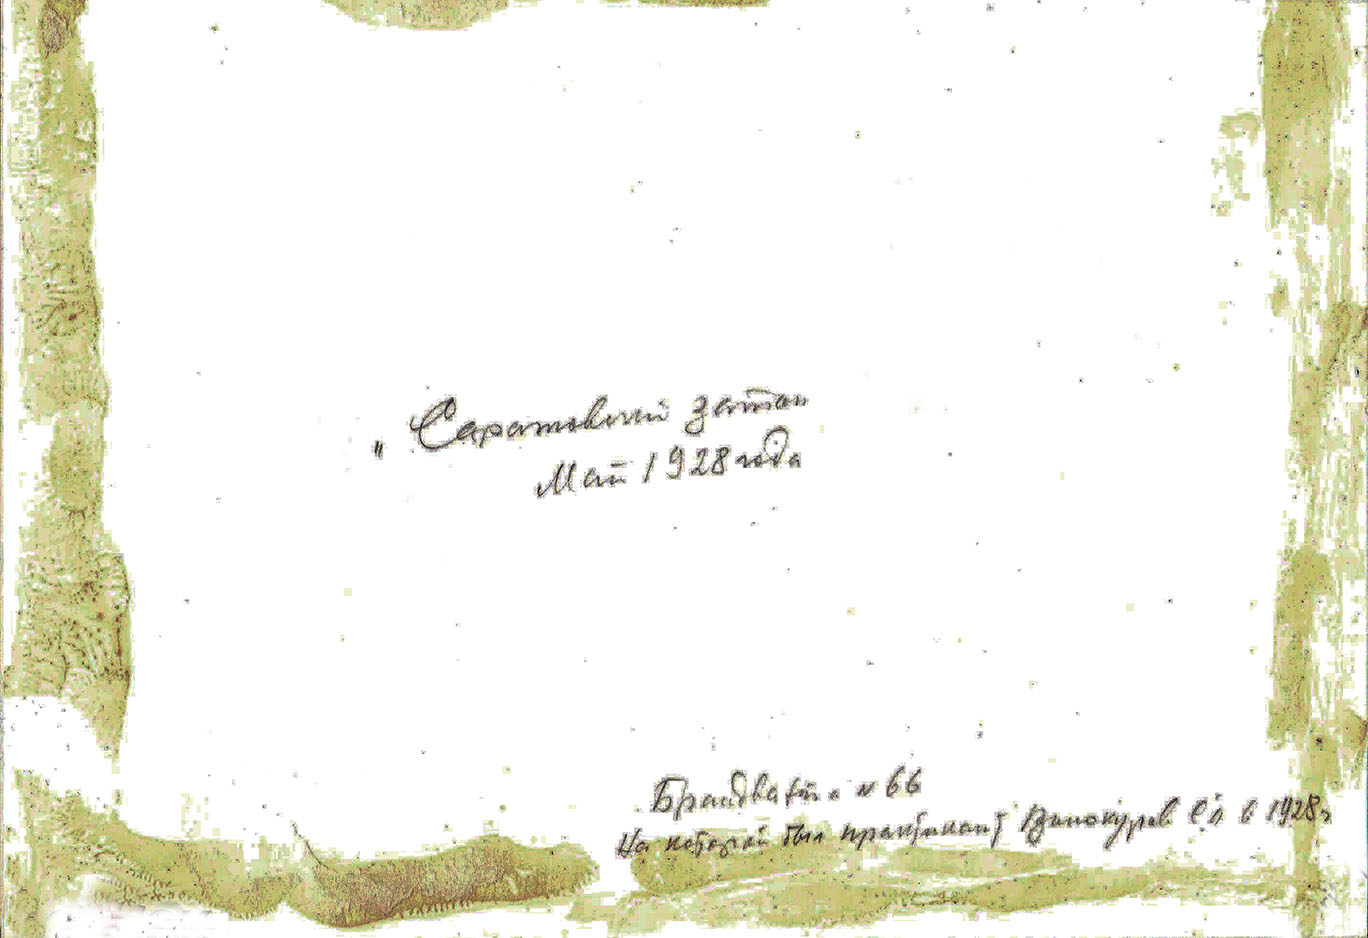 „ Саратовский затон
Май 1928 года
Брандвахта № 66
На которой был практикант Винокуров в 1928 г